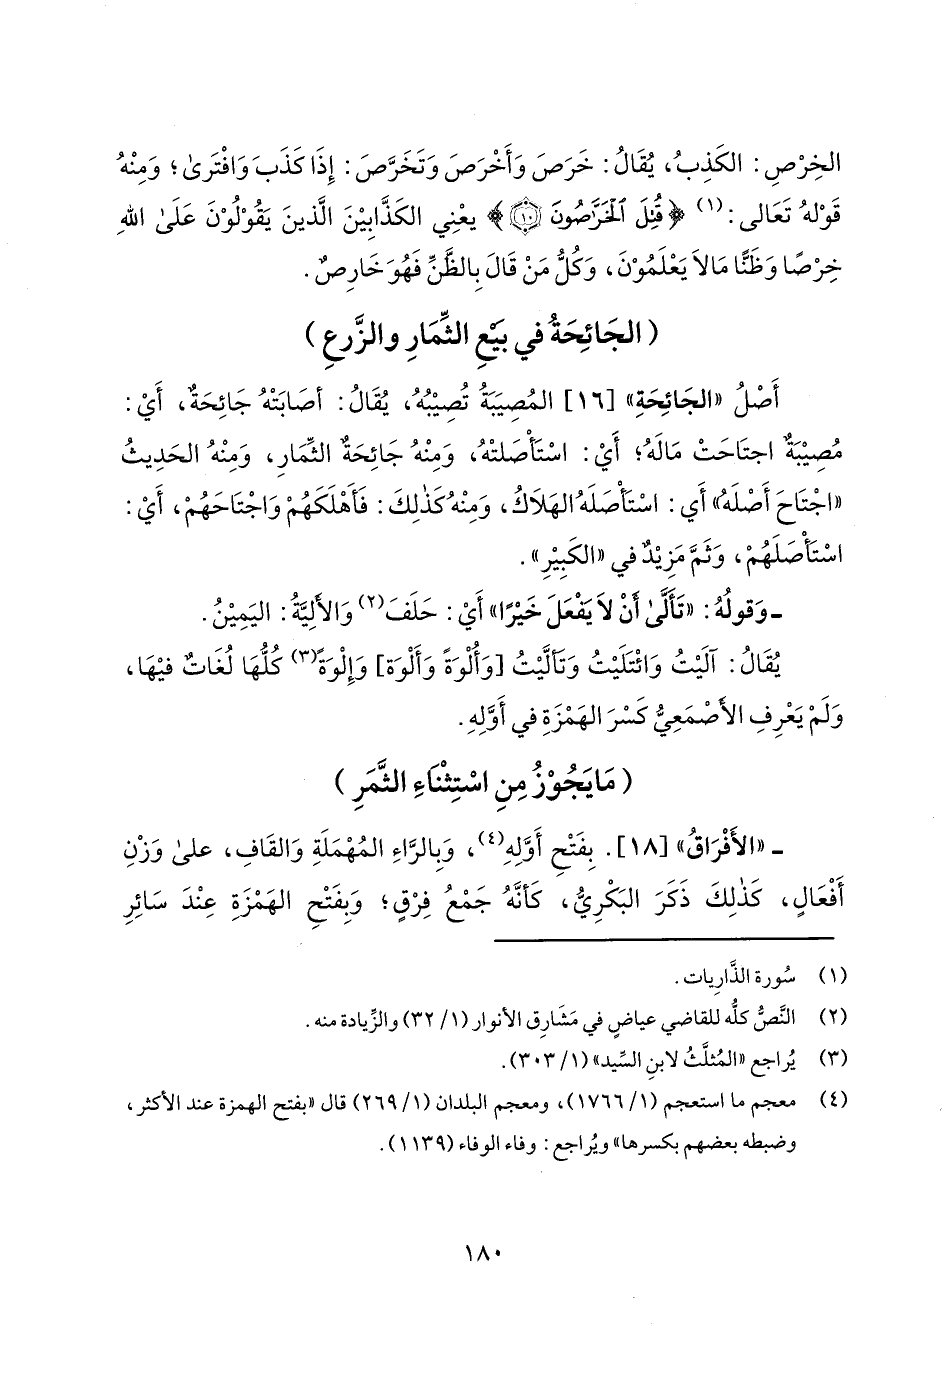 الخِرْصِ: الكَذِبُ، يُقَالُ: خَرَصَ وَأَخْرَصَ وَتَخَرَّصَ: إِذَا كَذَبَ وَافْتَرىٰ؛ وَمِنْهُ
قَوْلهُ تَعَالى:(١) ﴿قُتِلَ ٱلْخَرَّٰصُونَ ۝١٠﴾ يعْنِي الكَذَّابِيْنَ الَّذينَ يَقُوْلُوْنَ عَلَىٰ اللهِ
خِرْصًا وَظَنًّا مَالاَ يَعْلَمُوْنَ، وَكُلُّ مَنْ قَالَ بِالظَّنِّ فَهُوَ خَارِصٌ.
(الجَائِحَةُ في بَيْعِ الثِّمَارِ والزَّرعِ)
أَصْلُ «الجَائِحَةِ» [١٦] المُصِيَبَةُ تُصِيْبُهُ، يُقَالُ: أصَابَتْهُ جَائِحَةٌ، أَيْ:
مُصِيْبَةٌ اجتَاحَتْ مَالَهُ؛ أَيْ: اسْتَأْصَلتْهُ، وَمِنْهُ جَائِحَةُ الثِّمَارِ، وَمِنْهُ الحَدِيثُ
«اجْتَاحَ أَصْلَهُ» أَي: اسْتَأْصَلَهُ الهَلاَكُ، وَمِنْهُ كَذٰلِكَ: فَأَهْلَكَهُمْ وَاجْتَاحَهُمْ، أَيْ:
اسْتَأْصَلَهُمْ، وَثَمَّ مَزِيْدٌ في «الكَبِيْرِ».
ـ وَقولُهُ: «تَأَلَّىٰ أَنْ لاَ يَفْعَلَ خَيْرًا» أَيْ: حَلَفَ(٢) وَالأَلِيَّةُ: اليَمِيْنُ.
يُقَالُ: آلَيْتُ وَائْتَلَيْتُ وَتَأَلَّيْتُ [وَأُلْوَةً وَأَلْوَة] وَإِلْوَةً(٣) كُلُّهَا لُغَاتٌ فيْهَا،
وَلَمْ يَعْرِفِ الأَصْمَعِيُّ كَسْرَ الهَمْزَةِ في أَوَّلِهِ.
(مَا يَجُوْزُ مِنِ اسْتِثْنَاءِ الثَّمَرِ)
ـ «الأَفْرَاقُ» [١٨]. بِفَتْحِ أَوَّلِهِ(٤)، وَبِالرَّاءِ المُهْمَلَةِ وَالقَافِ، علىٰ وَزْنِ
أَفْعَالٍ، كَذٰلِكَ ذَكَرَ البَكْرِيُّ، كَأَنَّهُ جَمْعُ فِرْقٍ؛ وَبِفَتْحِ الهَمْزَةِ عِنْدَ سَائِرِ
(١) سُورة الذَّارِيات.
(٢) النَّصُّ كلُّه للقاضي عياضٍ في مَشَارِق الأنوار (١/ ٣٢) والزِّيادة منه.
(٣) يُراجع «المُثلَّثُ لابنِ السِّيد» (١/ ٣٠٣).
(٤) معجم ما استعجم (١/ ١٧٦٦)، ومعجم البلدان (١/ ٢٦٩) قال «بفتح الهمزة عند الأكثر،
وضبطه بعضهم بكسرها» ويُراجع: وفاء الوفاء (١١٣٩).
١٨٠